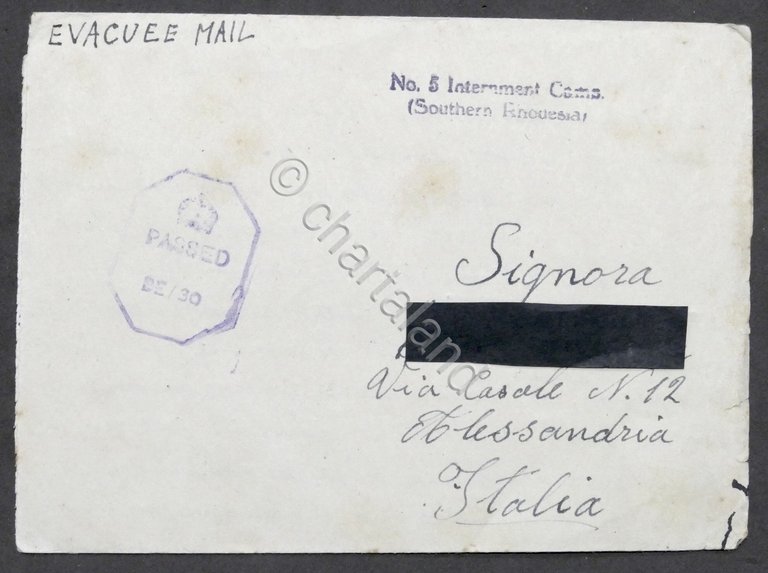 EVACUEE MAIL
No. 5 Internment Camp.
(Southern Rhodesia)
PASSED
DE/30
Signora
Via Casale N. 12
Alessandria
Italia
© chartaland